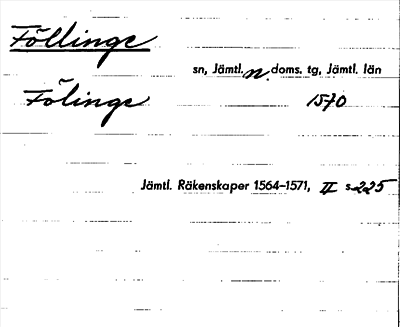 Föllinge
sn, Jämtl. n. doms. tg, Jämtl. län
Fölinge 1570
Jämtl. Räkenskaper 1564–1571, II s. 225